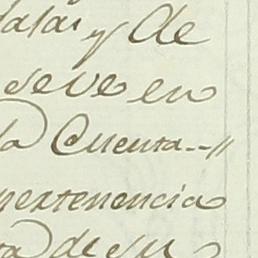 y de
se ve en
la Cuenta--//
pertenencia
de su